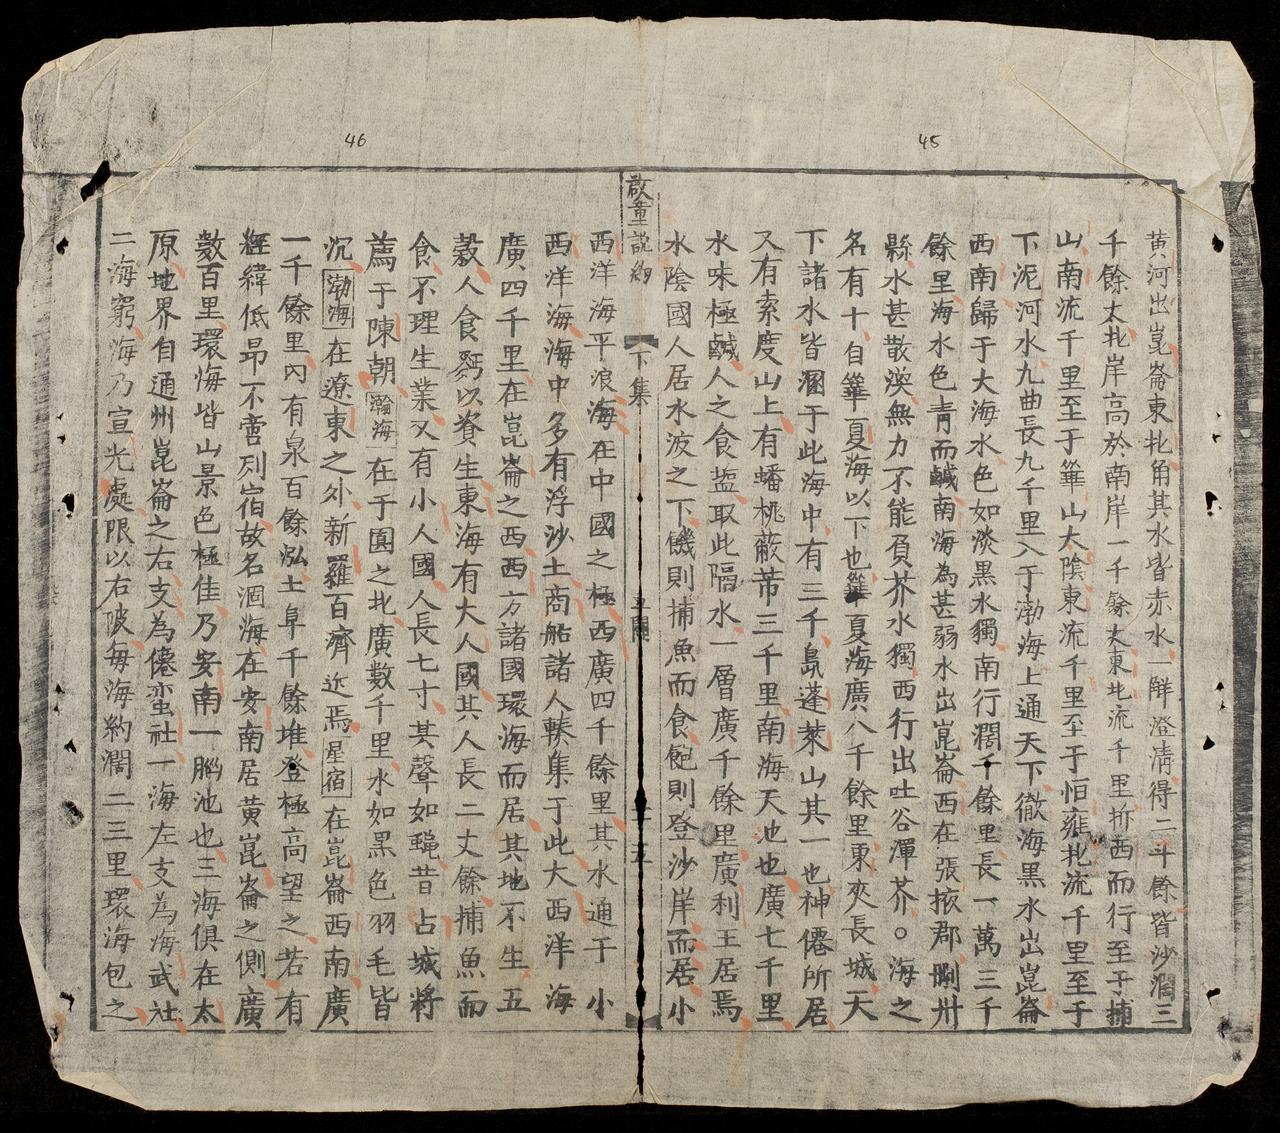 45
黄河出崑崙東北角其水皆赤水一觧澄清得二斗餘皆沙濶三
千餘丈北岸高於南岸一千餘丈東北流千里折西而行至于捕
山南流千里至于華山大隂東流千里至于恒雍北流千里至于
下泥河水九曲長九千里入于渤海上通天下徹海黒水出崑崙
西南歸于大海水色如淡黒水獨南行濶千餘里長一萬三千
餘里海水色青而鹹南海為甚弱水出崑崙西在張掖郡刪丹
縣水甚散渙無力不能負芥水獨西行出吐谷渾芥○海之
名有十自華夏海以下也華夏海廣八千餘里東夾長城天
下諸水皆溷于此海中有三千島蓬萊山其一也神僊所居
又有索度山上有蟠桃蔽芾三千里南海天池也廣七千里
水味極鹹人之食盐取此隔水一層廣千餘里廣利王居焉
水陰國人居水波之下饑則捕魚而食飽則登沙岸而居小
啟童說約 下集 五 二十五
46
西洋海平浪海在中國之極西廣四千餘里其水通于小
西洋海海中多有浮沙土商船諸人輳集于此大西洋海
廣四千里在崑崙之西西方諸國環海而居其地不生五
穀人食麪以資生東海有大人國其人長二丈餘捕魚而
食不理生業又有小人國人長七寸其聲如蠅昔占城將
薦于陳朝瀚海在于圓之北廣数千里水如黒色羽毛皆
沉渤海在遼東之外新羅百濟近焉星宿在崑崙西南廣
一千餘里內有泉百餘泓土阜千餘堆登極高望之若有
經緯低昻不啻列宿故名涸海在安南居黄崑崙之側廣
数百里環海皆山景色極佳乃安南一腦池也三海俱在太
原地界自通州崑崙之右支為僊蛮社一海左支為海武社
二海窮海乃宣光處限以右陂每海約濶二三里環海包之